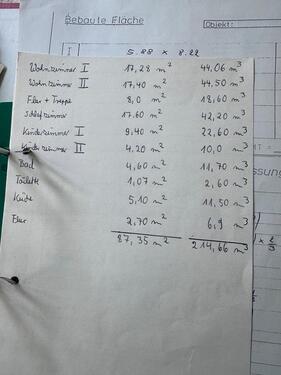 Bebaute Fläche
Objekt:
I 5.88 x 8.22
Wohnzimmer I 17,28 m² 44,06 m³
Wohnzimmer II 17,40 m² 44,50 m³
Flur + Treppe 8,0 m² 18,60 m³
Schlafzimmer 17.60 m² 42,20 m³
Kinderzimmer I 9,40 m² 22,60 m³
Kinderzimmer II 4,20 m² 10,0 m³
Bad 4,60 m² 11,70 m³
Toilette 1,07 m² 2,60 m³
Küche 5,10 m² 11,50 m³
Flur 2,70 m² 6,9 m³
87,35 m² 214,66 m³